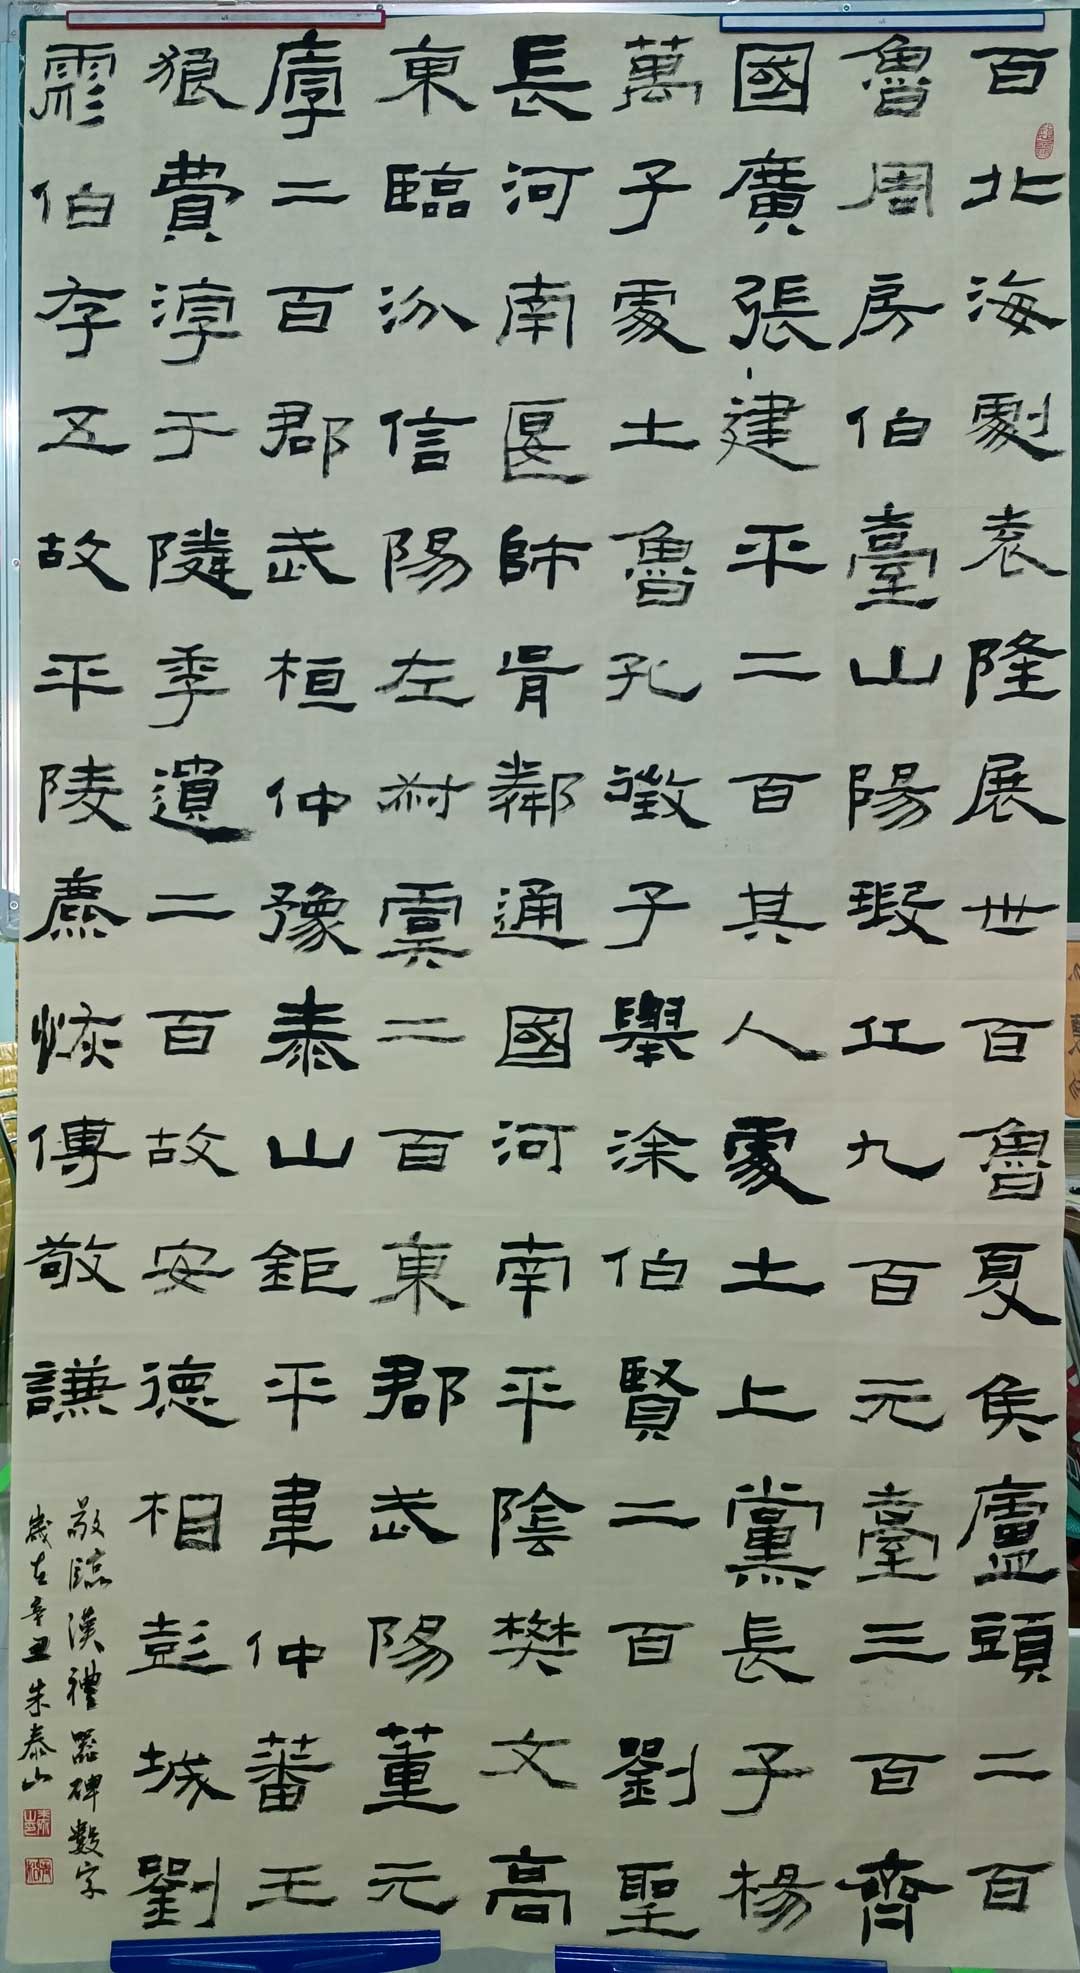 百北海劇袁隆展世百魯夏侯廬頭二百
魯周房伯臺山陽瑕丘九百元臺三百齊
國廣張建平二百其人處士上黨長子楊
萬子處土魯孔徵子舉涂伯賢二百劉聖
長河南匽師胥鄰通國河南平陰樊文高
東臨汾信陽左尉虞二百東郡武陽董元
厚二百郡武桓仲豫泰山鉅平韋仲蕃王
狼費淳于隣季遺二百故安德相彭城劉
彪伯存五故平陵廌恢傳敬謙
敬臨漢禮器碑數字
歲在辛丑朱泰山